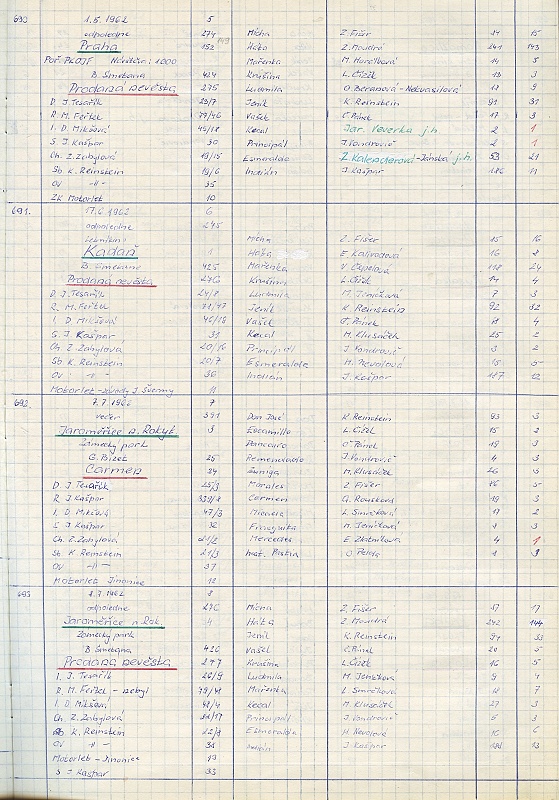 690 1.5.1962 5
odpoledne 274 Mícha Z. Fišer 14 15
Praha 152 Háta Z. Moudrá 241 143
Poř. PKOJF Návštěv.: 1000 Mařenka 14 5
B. Smetana 424 Krušina L. Čížek 13 3
Prodaná nevěsta 275 Ludmila O. Beranová - Nekvasilová 17 9
D. J. Tesařík 23/7 Jeník K. Reinstein 91 31
R. M. Feřtek 79/46 Vašek O. Pánek 17 3
I. D. Mikšová 45/18 Kecal Jar. Veverka j.h. 2 1
S. J. Kašpar 30 Principál J. Vondrovič 2 1
Ch. Z. Zabylová 19/15 Esmeralda Z. Kalenderová-Jánská j.h. 53 21
Sb. K. Reinstein 19/6 Indián J. Kašpar 186 11
OV -"- 35
ZK Motorlet 10
691. 17.6.1962 6
odpoledne 245
Mícha Z. Fišer 15 16
Kadaň 1 Háta E. Kalivodová 16 8
B. Smetana 425 Mařenka V. Čepelová 118 24
Prodaná nevěsta 276 Krušina L. Čížek 14 4
D. J. Tesařík 24/8 Ludmila M. Jeníčková 7 3
R. M. Feřtek Jeník K. Reinstein 92 32
I. D. Mikšová 46/18 Vašek O. Pánek 18 4
S. J. Kašpar 31 Kecal M. Klusáček 25 2
Ch. Z. Zabylová 20/16 Principál J. Vondrovič 3 2
Sb. K. Reinstein 20/7 Esmeralda H. Nevolová 15 5
OV -"- 36 Indián J. Kašpar 187 12
Motorlet - závody J. Švermy 11
692. 7.7.1962 7
večer 391 Don José K. Reinstein 93 3
Jaroměřice n. Rokyt. 3 Escamillo L. Čížek 15 2
Zámecký park Dancairo O. Pánek 19 3
G. Bizet 25 Remendado J. Vondrovič 4 3
Carmen 24 Zuniga M. Klusáček 26 3
D. J. Tesařík 25/3 Morales Z. Fišer 16 5
R. J. Kašpar Carmen 19 3
I. D. Mikšová 47/3 Micaela L. Smrčková 17 2
S. J. Kašpar 32 Frasquita M. Jeníčková 8 3
Ch. Z. Zabylová 21/2 Mercedes E. Zlatníková 4 1
Sb. K. Reinstein 21/3 host. Pastia 1 3
OV -"- 37
Motorlet Jinonice 12
693 8.7.1962 8
odpoledne 246 Mícha Z. Fišer 17 17
Jaroměřice n. Rok. 4 Háta Z. Moudrá 242 144
Zámecký park Jeník K. Reinstein 94 33
B. Smetana 426 Vašek O. Pánek 20 5
Prodaná nevěsta 277 Krušina L. Čížek 16 5
I. J. Tesařík 26/9 Ludmila M. Jeníčková 9 4
R. M. Feřtek - nebyl Mařenka L. Smrčková 18 7
I. D. Mikšová 48/ Kecal M. Klusáček 27 3
Ch. Z. Zabylová 22/17 Principál J. Vondrovič 5 3
Sb. K. Reinstein 22/8 Esmeralda H. Nevolová 16 6
OV -"- 38 Indián J. Kašpar 188 13
Motorlet - Jinonice 13
S - Kašpar 33